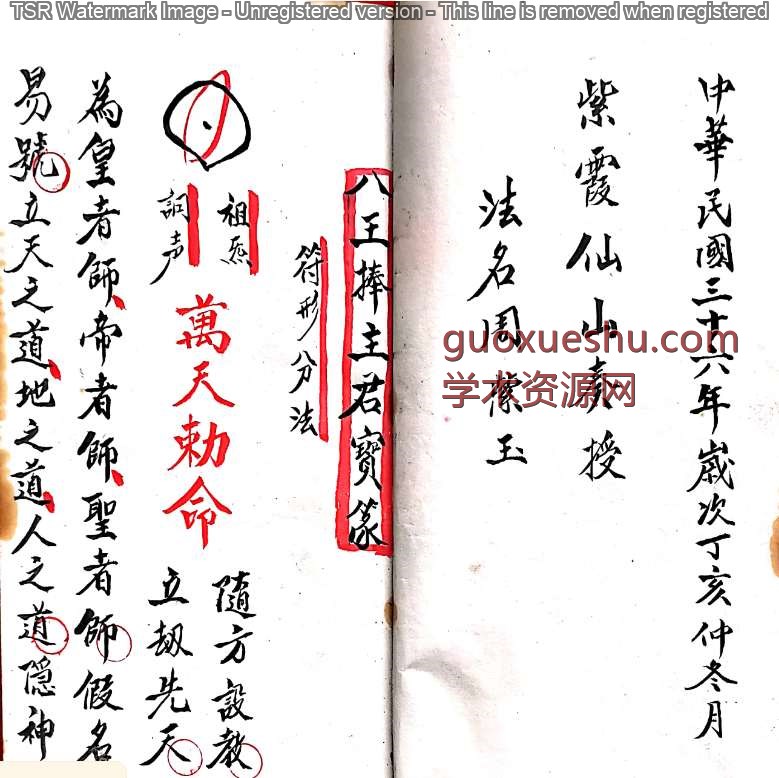 TSR Watermark Image - Unregistered version - This line is removed when registered
中華民國三十六年歲次丁亥仲冬月
紫霞仙山奏授
法名周蘂玉
guoxueshu.com
学术资源网
八王捧主君寶篆
符形分法
祖炁
詞声
萬天勅命
隨方設教
立劫先天
為皇者師帝者師聖者師假名
易號立天之道地之道人之道隱神